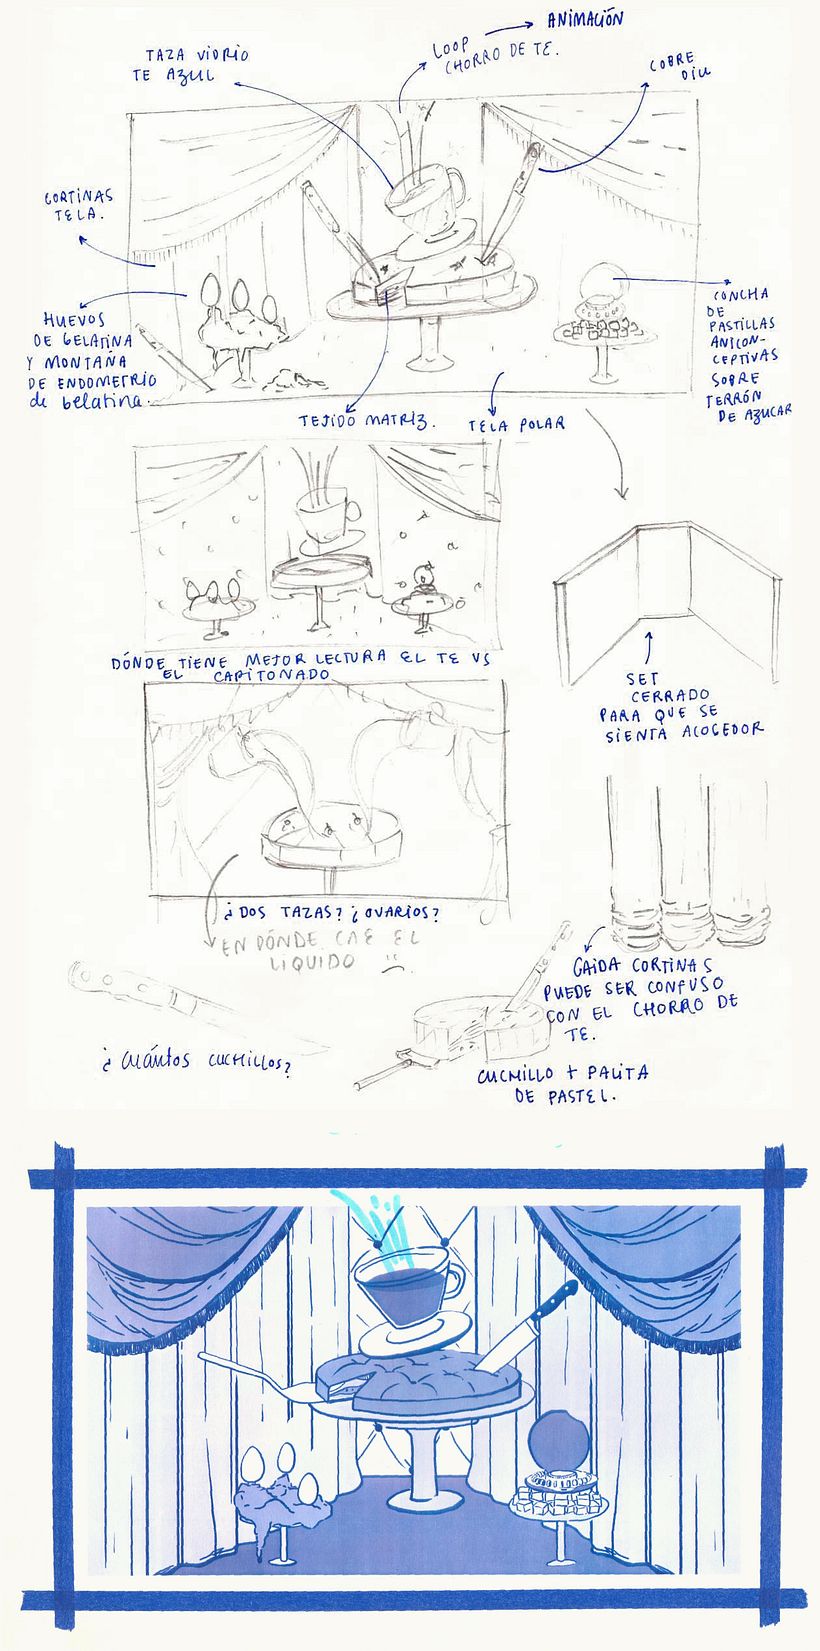 ANIMACIÓN
LOOP
CHORRO DE TE.
TAZA VIDRIO
TE AZUL
COBRE
DIU
CORTINAS
TELA.
HUEVOS
DE GELATINA
Y MONTAÑA
DE ENDOMETRIO
de gelatina.
CONCHA
DE
PASTILLAS
ANTICON-
CEPTIVAS
SOBRE
TERRÓN
DE AZUCAR
TEJIDO MATRIZ.
TELA POLAR
DÓNDE TIENE MEJOR LECTURA EL TE VS
EL CAPITONADO
SET
CERRADO
PARA QUE SE
SIENTA ACOGEDOR
¿DOS TAZAS? ¿OVARIOS?
EN DÓNDE CAE EL
LIQUIDO
CAIDA CORTINAS
PUEDE SER CONFUSO
CON EL CHORRO DE
TE.
¿CUÁNTOS CUCHILLOS?
CUCHILLO + PALITA
DE PASTEL.